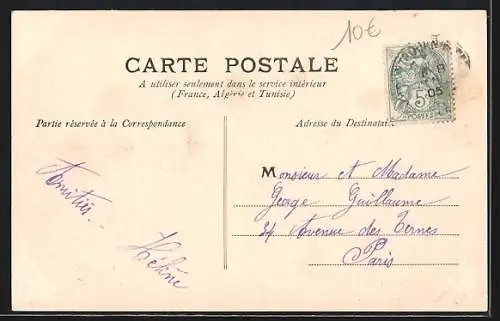 10€
CARTE POSTALE
A utiliser seulement dans le service intérieur
(France, Algérie et Tunisie)
Partie réservée à la Correspondance
Adresse du Destinataire
5
POSTES
05
Amitiés..
Hélène
Monsieur et Madame
George Guillaume
24 Avenue des Ternes
Paris